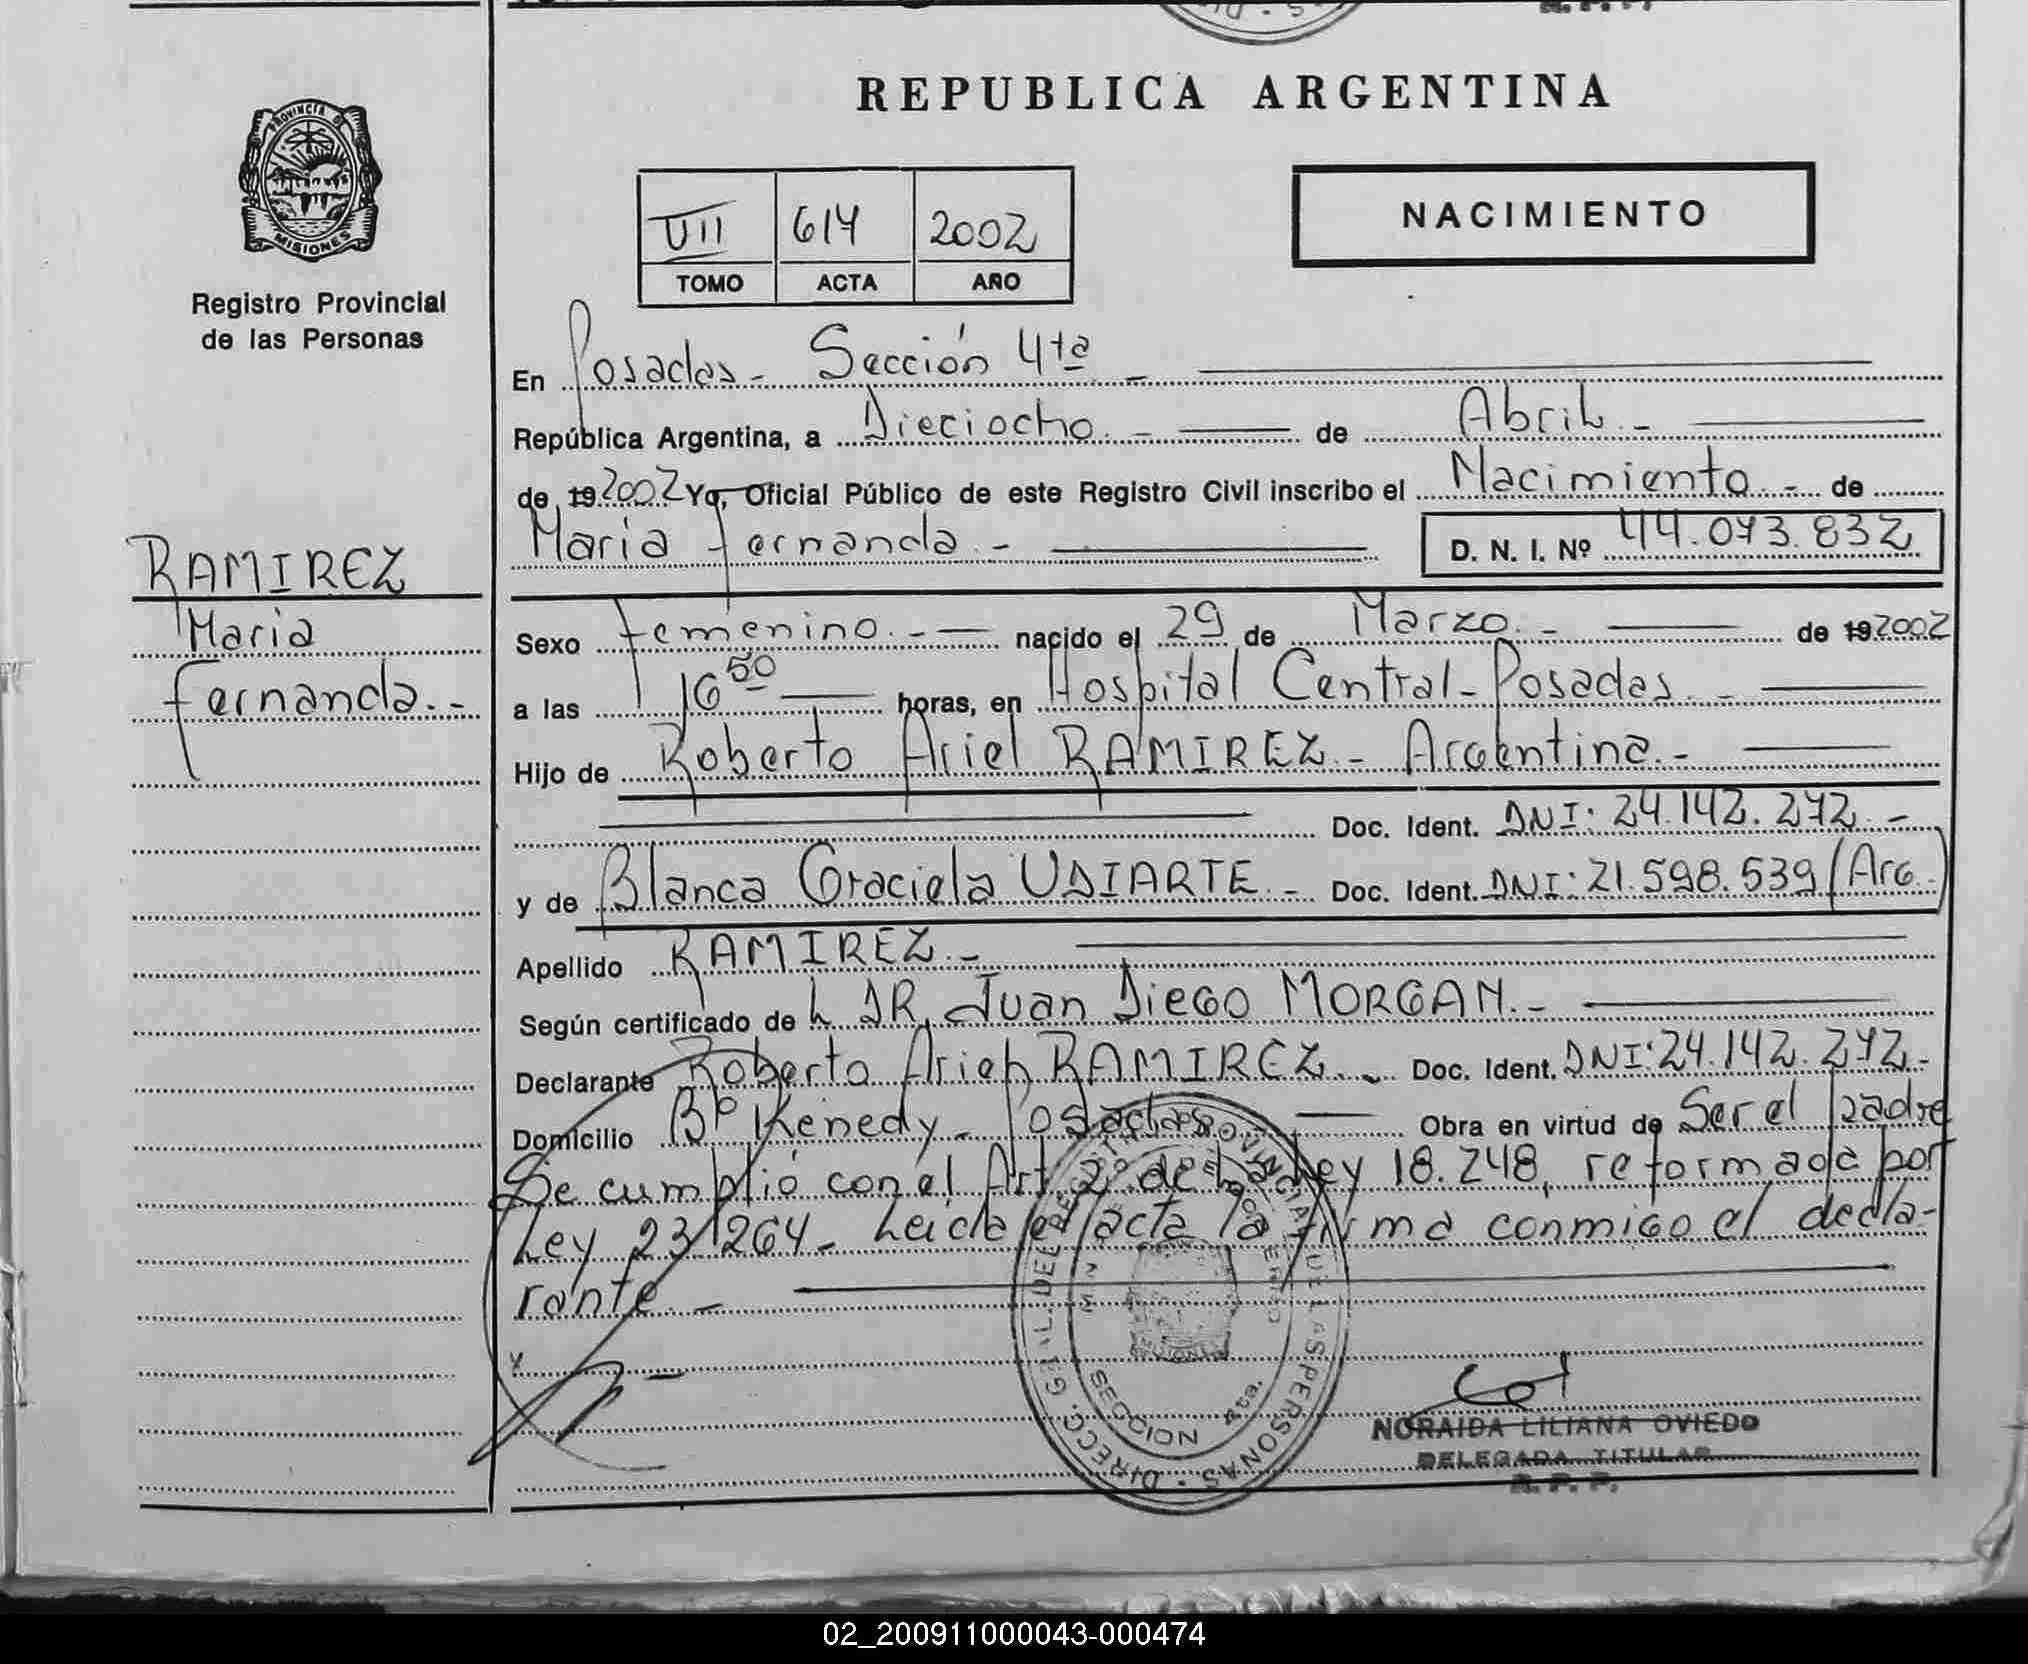 REPUBLICA ARGENTINA
PROVINCIA DE
MISIONES
Registro Provincial
de las Personas
VII 614 2002
TOMO ACTA AÑO
NACIMIENTO
En Posadas - Sección 4ta -
República Argentina, a Dieciocho. - de Abril. -
de 19 2002 Yo, Oficial Público de este Registro Civil inscribo el Nacimiento. - de
Maria Fernanda. - D. N. I. Nº 44.073.832
RAMIREZ
Maria
Fernanda. -
Sexo Femenino. - nacido el 29 de Marzo. - de 19 2002
a las 16 50 horas, en Hospital Central - Posadas. -
Hijo de Roberto Ariel RAMIREZ. - Argentina. -
Doc. Ident. DNI: 24.142.272. -
y de Blanca Graciela UDIARTE. - Doc. Ident. DNI: 21.598.539 (Arg.)
Apellido RAMIREZ. -
Según certificado de L DR. Juan Diego MORGAN. -
Declarante Roberto Ariel RAMIREZ. - Doc. Ident. DNI: 24.142.272. -
Domicilio Bº Kenedy - Posadas Obra en virtud de Ser el padre
Se cumplió con el Art 2º de la Ley 18.248, reformada por
Ley 23.264 - Leida el acta la firma conmigo el decla-
rante. -
DIRECC. GRAL. DEL REG. PROVINCIAL DE LAS PERSONAS
SECCION 4ta.
NORAIDA LILIANA OVIEDO
DELEGADA TITULAR
R. P. P.
02_200911000043-000474